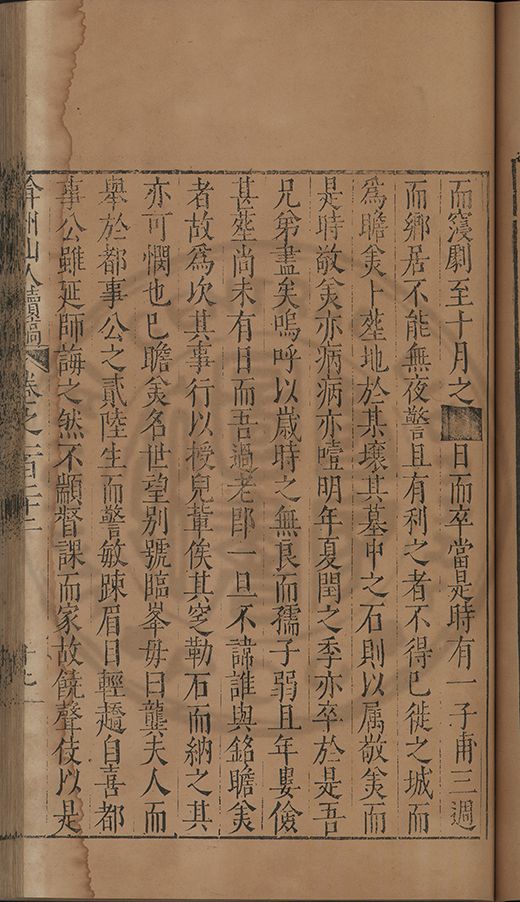 而寖劇至十月之
日而卒當是時有一子甫三週
而鄉居不能無夜警且有利之者不得已徙之城而
為瞻美卜塟地於某壤其墓中之石則以属敬美而
是時敬美亦病病亦噎明年夏閏之季亦卒於是吾
兄弟盡矣嗚呼以歳時之無良而孺子弱且年婁儉
甚塟尚未有日而吾過老郎一旦不諱誰與銘瞻美
者故為次其事行以授兒輩俟其窆勒石而納之其
亦可憫也已瞻美名世望別號臨峯毋曰龔夫人而
舉於都事公之貳陸生而警敏踈眉目輕趫自喜都
事公雖延師誨之然不顓督課而家故饒聲伎以是
弇州山人續稿 卷之一百
十九